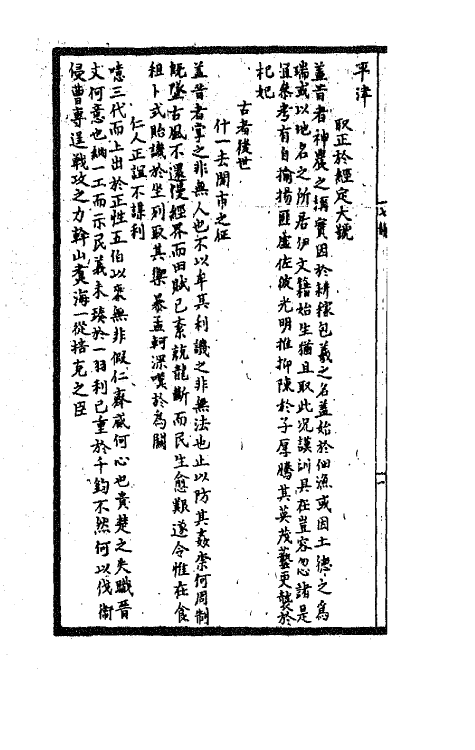 平津
取正於經定大號
蓋昔者神農之謂實因於耕稼包羲之名蓋始於佃漁或因土德之為
瑞或以地名之所居伊文籍始生猶且取此况謨訓具在豈容忽諸是
宜參考有自揄揚匪虛佐彼光明推抑陳於子厚騰其英茂藝更襲於
杞妃
古者後世
什一去關市之征
蓋昔者掌之非無人也不以牟其利譏之非無法也止以防其姦柰何周制
既墜古風不還慢經界而田賦已紊就龍斷而民生愈艱遂令惟在食
租卜式貽譏於坐列取其禦暴孟軻深嘆於為關
仁人正誼不謀利
噫三代而上出於正性五伯以來無非假仁齊威何心也責楚之失職晉
文何意也納一工而示民義未瑧於一羽利已重於千鈞不然何以伐衛
侵曹專逞戰攻之力斡山煑海一從掊克之臣